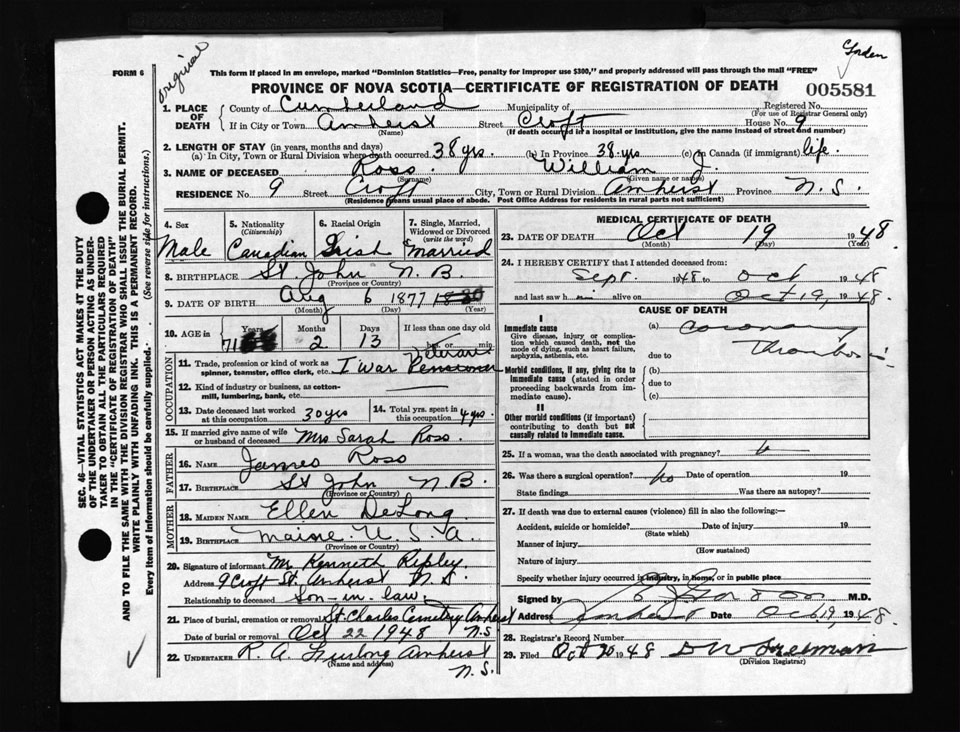 Gordon
original
FORM 6
This form if placed in an envelope, marked "Dominion Statistics—Free, penalty for improper use $300," and properly addressed will pass through the mail "FREE"
PROVINCE OF NOVA SCOTIA—CERTIFICATE OF REGISTRATION OF DEATH
005581
1. PLACE OF DEATH
County of Cumberland Municipality of Registered No.
(For use of Registrar General only)
If in City or Town Amherst Street Croft House No. 9
(Name) (If death occurred in a hospital or institution, give the name instead of street and number)
2. LENGTH OF STAY (in years, months and days)
(a) In City, Town or Rural Division where death occurred 38 yrs. (b) In Province 38 yrs (c) in Canada (if immigrant) life.
3. NAME OF DECEASED Ross William J.
(Surname) (Given name or names)
RESIDENCE No. 9 Street Croft City, Town or Rural Division Amherst Province N.S.
(Residence means usual place of abode. Post Office Address for residents in rural parts not sufficient)
4. Sex 5. Nationality (Citizenship) 6. Racial Origin 7. Single, Married, Widowed or Divorced (write the word)
Male Canadian Irish Married
8. BIRTHPLACE St. John N.B.
(Province or Country)
9. DATE OF BIRTH Aug 6 1877
(Month) (Day) (Year)
10. AGE in Years Months Days If less than one day
71 2 13 hrs. or min.
OCCUPATION
11. Trade, profession or kind of work as spinner, teamster, office clerk, etc. I War Veterans Pensioner
12. Kind of industry or business, as cotton-mill, lumbering, bank, etc.
13. Date deceased last worked at this occupation 30 yrs 14. Total yrs. spent in this occupation 4 yrs.
15. If married give name of wife or husband of deceased Mrs Sarah Ross.
FATHER
16. NAME James Ross
17. BIRTHPLACE St John N.B.
(Province or Country)
MOTHER
18. MAIDEN NAME Ellen DeLong
19. BIRTHPLACE Maine U.S.A
(Province or Country)
20. Signature of informant Mr Kenneth Ripley
Address 9 Croft St. Amherst N.S.
Relationship to deceased Son-in-law.
21. Place of burial, cremation or removal St Charles Cemetery Amherst
Date of burial or removal Oct 22 1948 N.S
22. UNDERTAKER R. A. Furlong Amherst
(Name and address) N.S.
MEDICAL CERTIFICATE OF DEATH
23. DATE OF DEATH Oct 19 1948.
(Month) (Day) (Year)
24. I HEREBY CERTIFY that I attended deceased from:
Sept. 1948 to Oct 1948
and last saw him alive on Oct 19, 1948.
CAUSE OF DEATH
I
Immediate cause
Give disease, injury or complication which caused death, not the mode of dying, such as heart failure, asphyxia, asthenia, etc.
(a) Coronary
due to Thrombosis
Morbid conditions, if any, giving rise to immediate cause (stated in order proceeding backwards from immediate cause).
(b)
due to
(c)
II
Other morbid conditions (if important) contributing to death but not causally related to immediate cause.
25. If a woman, was the death associated with pregnancy?
26. Was there a surgical operation? No Date of operation 19
State findings Was there an autopsy?
27. If death was due to external causes (violence) fill in also the following:—
Accident, suicide or homicide? Date of injury 19
(State which)
Manner of injury
(How sustained)
Nature of injury
Specify whether injury occurred in industry, in home, or in public place
Signed by Gordon M.D.
Address Amherst Date Oct 19, 1948
28. Registrar's Record Number
29. Filed Oct 20 1948 D W Freeman
(Division Registrar)
SEC. 46—VITAL STATISTICS ACT MAKES IT THE DUTY
OF THE UNDERTAKER OR PERSON ACTING AS UNDER-
TAKER TO OBTAIN ALL THE PARTICULARS REQUIRED
IN THE "CERTIFICATE OF REGISTRATION OF DEATH"
AND TO FILE THE SAME WITH THE DIVISION REGISTRAR WHO SHALL ISSUE THE BURIAL PERMIT.
WRITE PLAINLY WITH UNFADING INK. THIS IS A PERMANENT RECORD.
Every item of Information should be carefully supplied. (See reverse side for instructions.)